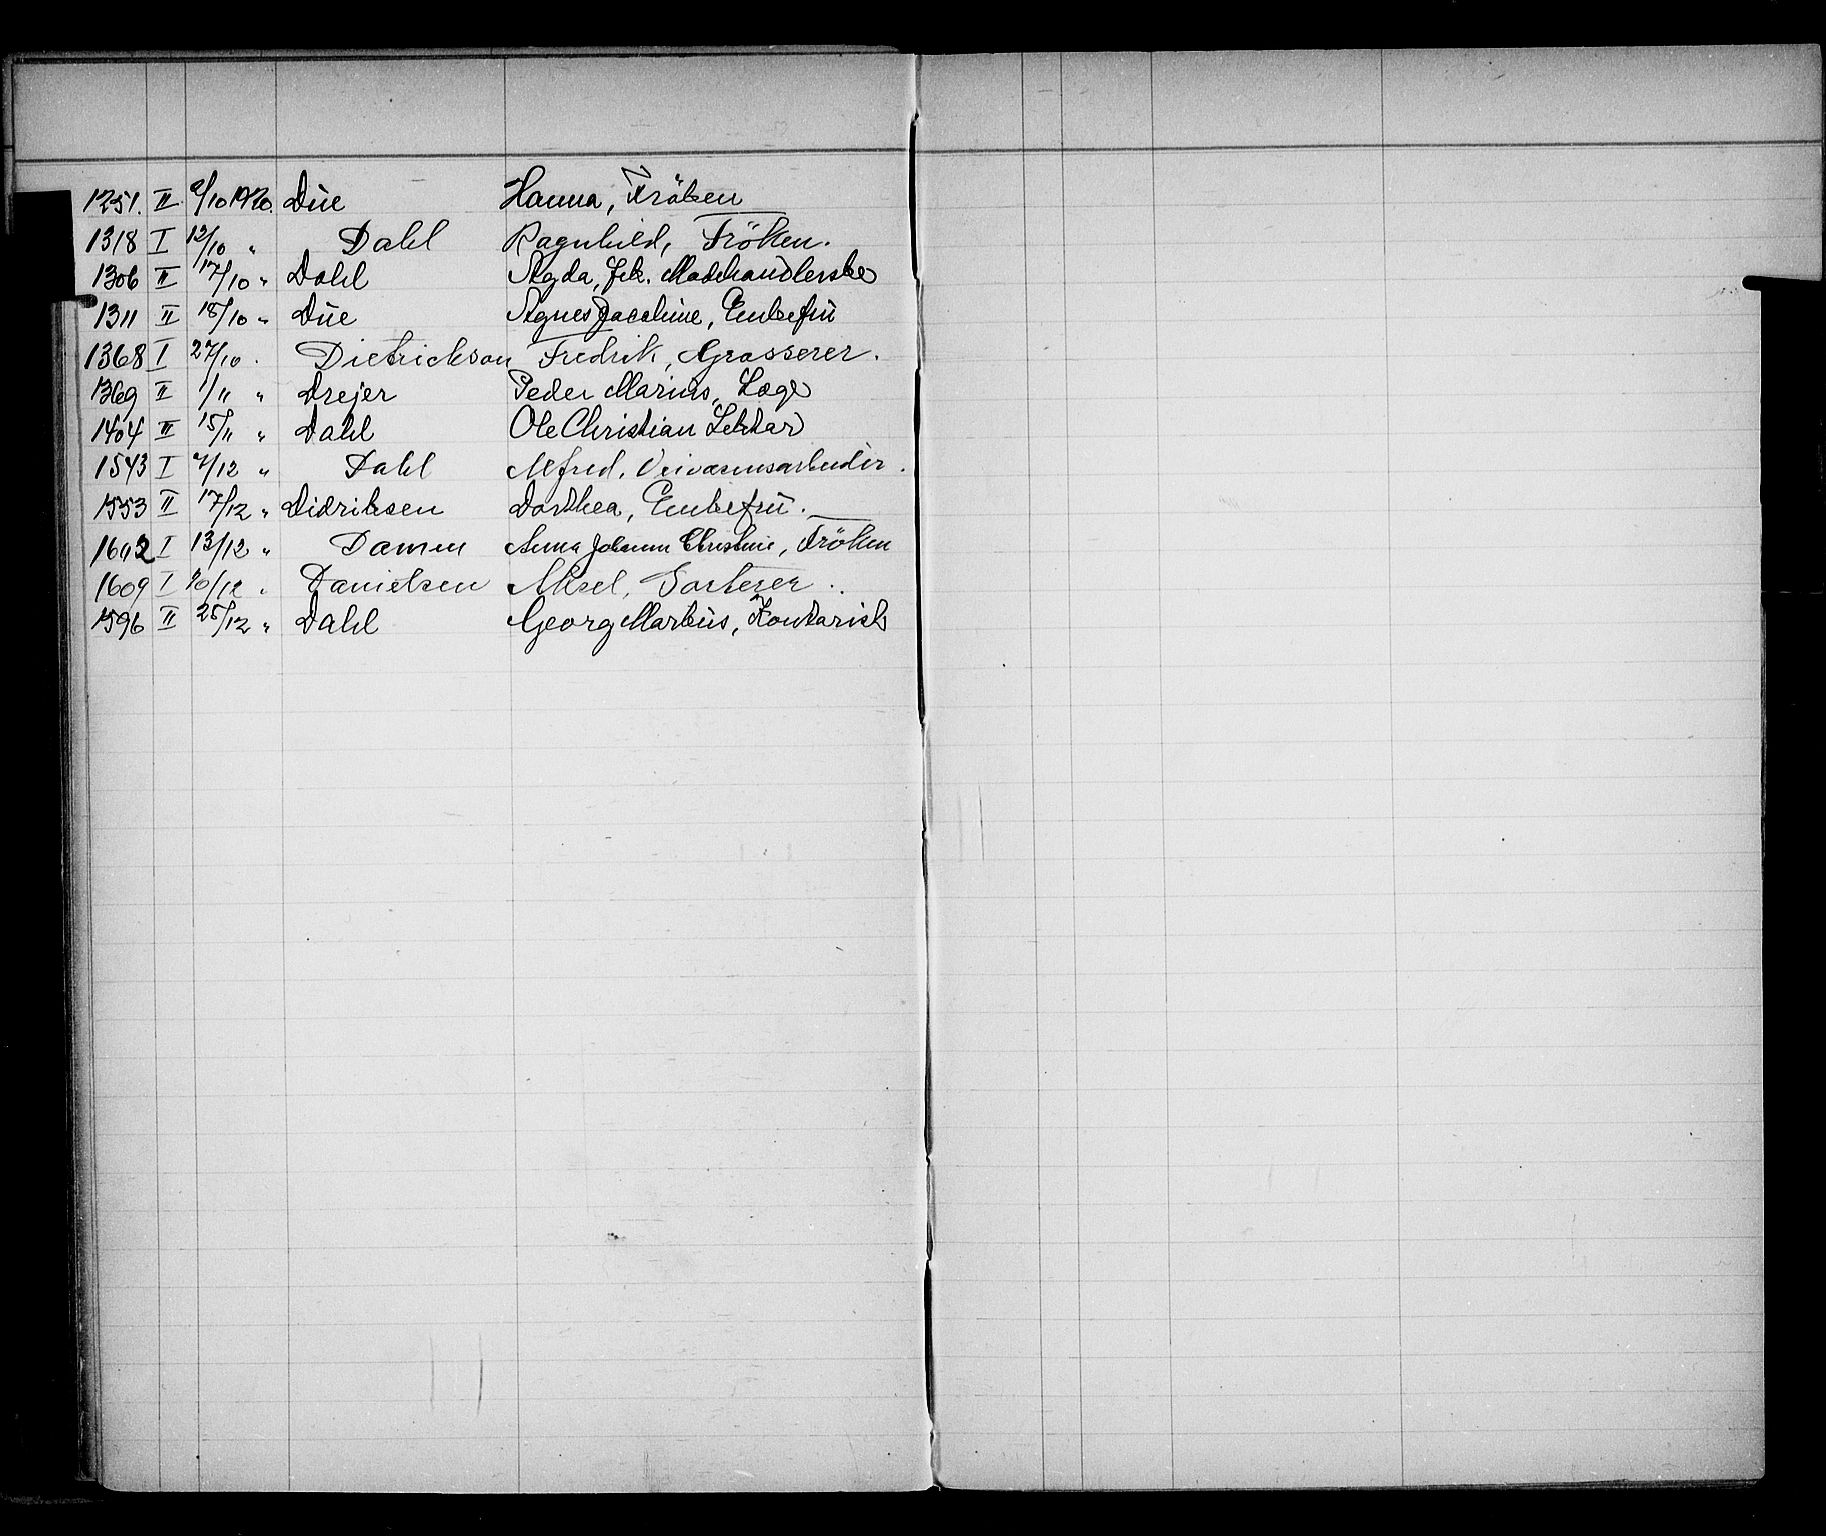 1251. II 9/10 1920. Due Hanna, Fröken
1318 I 12/10 " Dahl Ragnhild, Fröken.
1306 II 17/10 " Dahl Agda, frk. Modehandlerske
1311 II 18/10 " Due Agnes Jacobine, Enkefru
1368 I 27/10 . Dietrickson Fredrik, Grosserer.
1369 II 1/11 " Drejer Peder Marius, Læge
1404 II 15/11 " Dahl Ole Christian Lektor
1543 I 7/12 " Dahl Alfred, Veivæsensarbeider.
1553 II 17/12 " Didriksen Dorthea, Enkefru.
1612 I 13/12 " Damm Anna Johanne Christine, Fröken
1609 I 20/12 " Danielsen Aksel, Sorterer.
1596 II 25/12 " Dahl Georg Markus, Kontorist